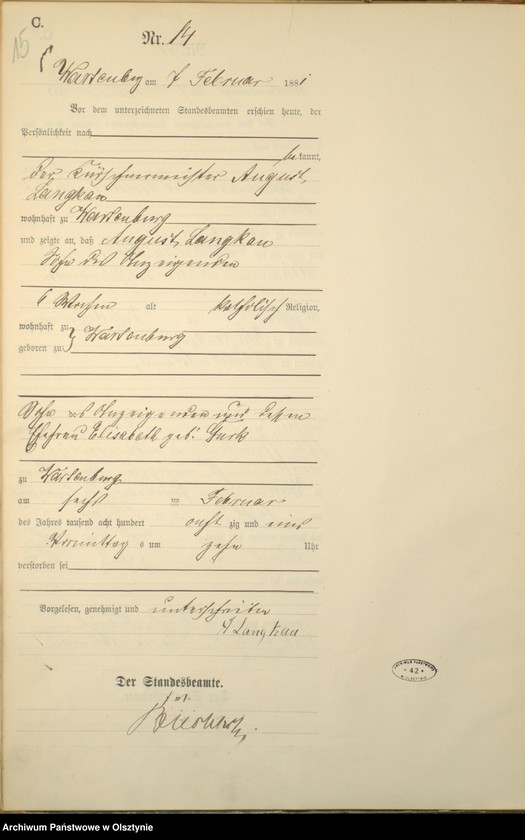 C.
15
Nr. 14
Wartenburg am 7 Februar 1881
Vor dem unterzeichneten Standesbeamten erschien heute, der
Persönlichkeit nach
bekannt,
der Kürschnermeister August
Langkau
wohnhaft zu Wartenburg
und zeigte an, daß August Langkau
Sohn des Anzeigenden
6 Wochen alt katholisch Religion,
wohnhaft zu
geboren zu } Wartenburg
Sohn des Anzeigenden und dessen
Ehefrau Elisabeth geb.
zu Wartenburg
am sechs ten Februar
des Jahres tausend acht hundert acht zig und eins
Vormittag s um zehn Uhr
verstorben sei
Vorgelesen, genehmigt und unterschrieben
A Langkau
Der Standesbeamte.
ARCHIWUM PAŃSTWOWE
42
W OLSZTYNIE
Archiwum Państwowe w Olsztynie